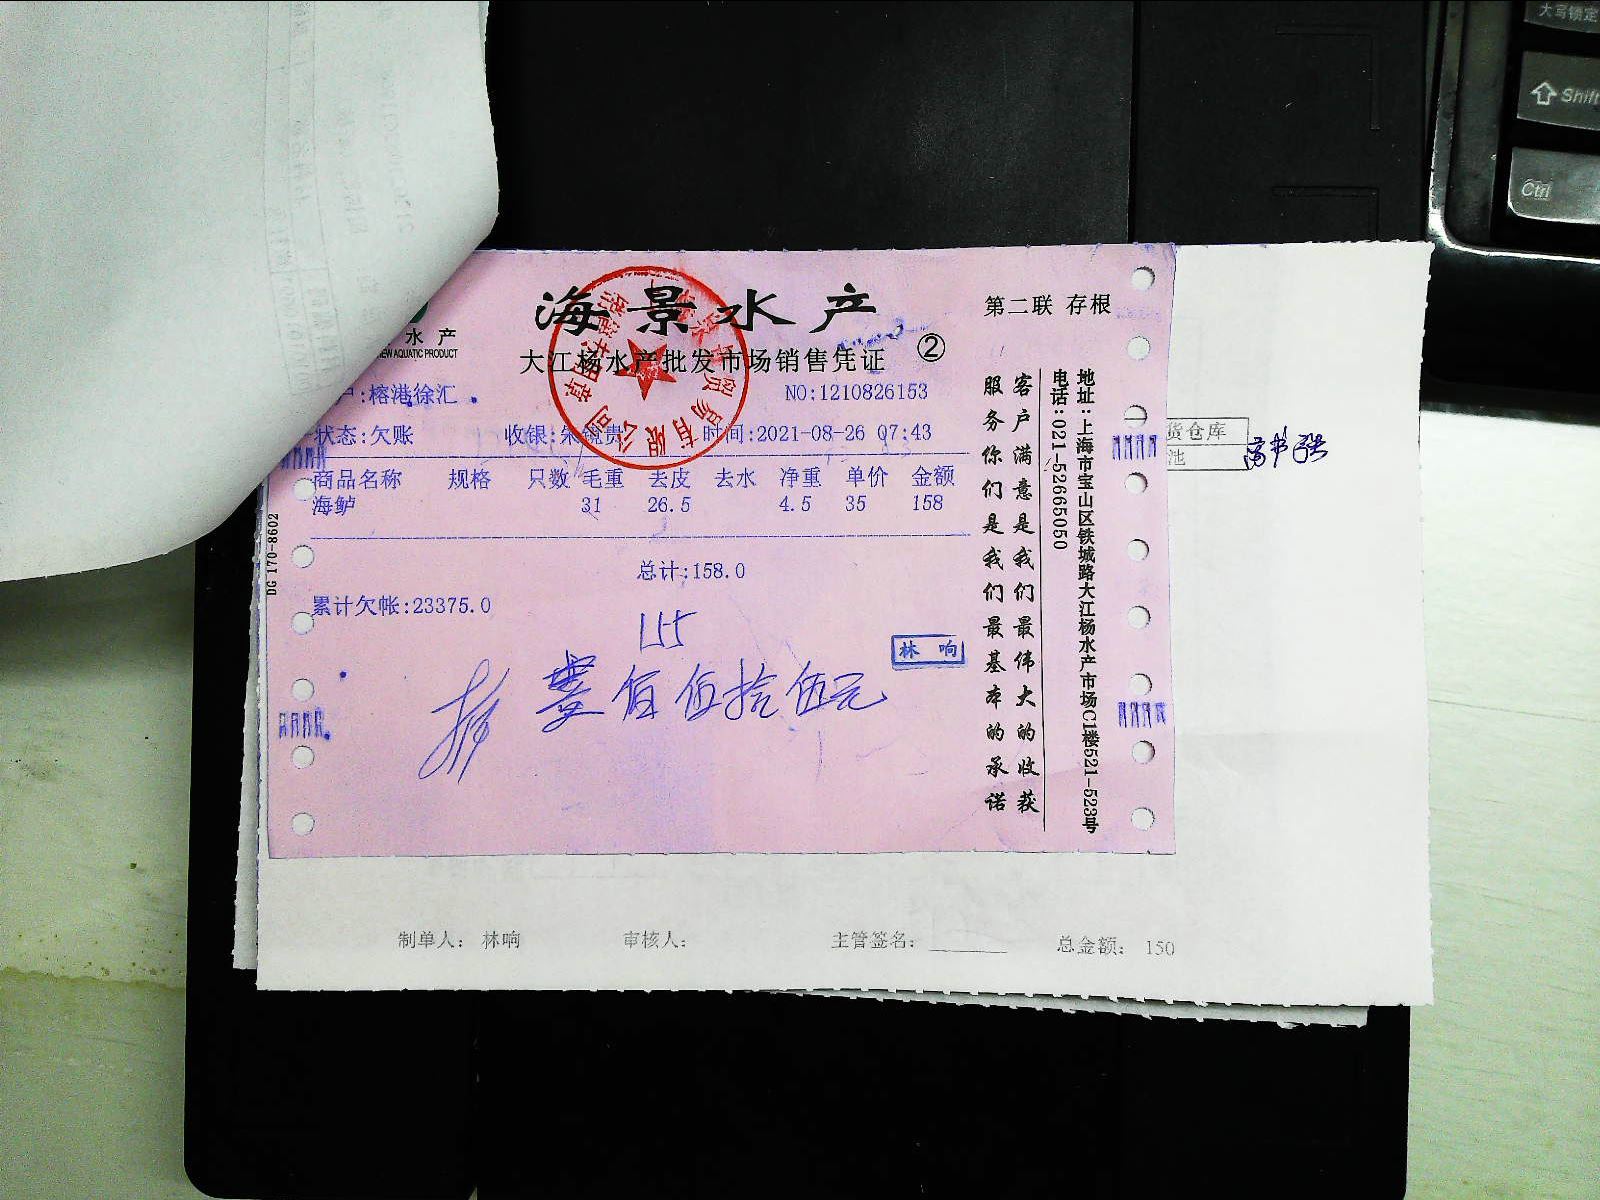 海景水产
第二联 存根
水产
NEW AQUATIC PRODUCT
大江杨水产批发市场销售凭证 ②
户:榕港徐汇
NO:1210826153
状态:欠账 收银:朱镜贵 时间:2021-08-26 07:43
商品名称 规格 只数 毛重 去皮 去水 净重 单价 金额
海鲈 31 26.5 4.5 35 158
总计:158.0
累计欠帐:23375.0
155
林响
壹佰伍拾伍元
客户满意是我们最伟大的收获
服务你们是我们最基本的承诺
地址:上海市宝山区铁城路大江杨水产市场C1楼521-523号
电话:021-52665050
DG 170-8602
货仓库
池
制单人: 林响 审核人: 主管签名: 总金额: 150
大写锁定
Shift
Ctrl